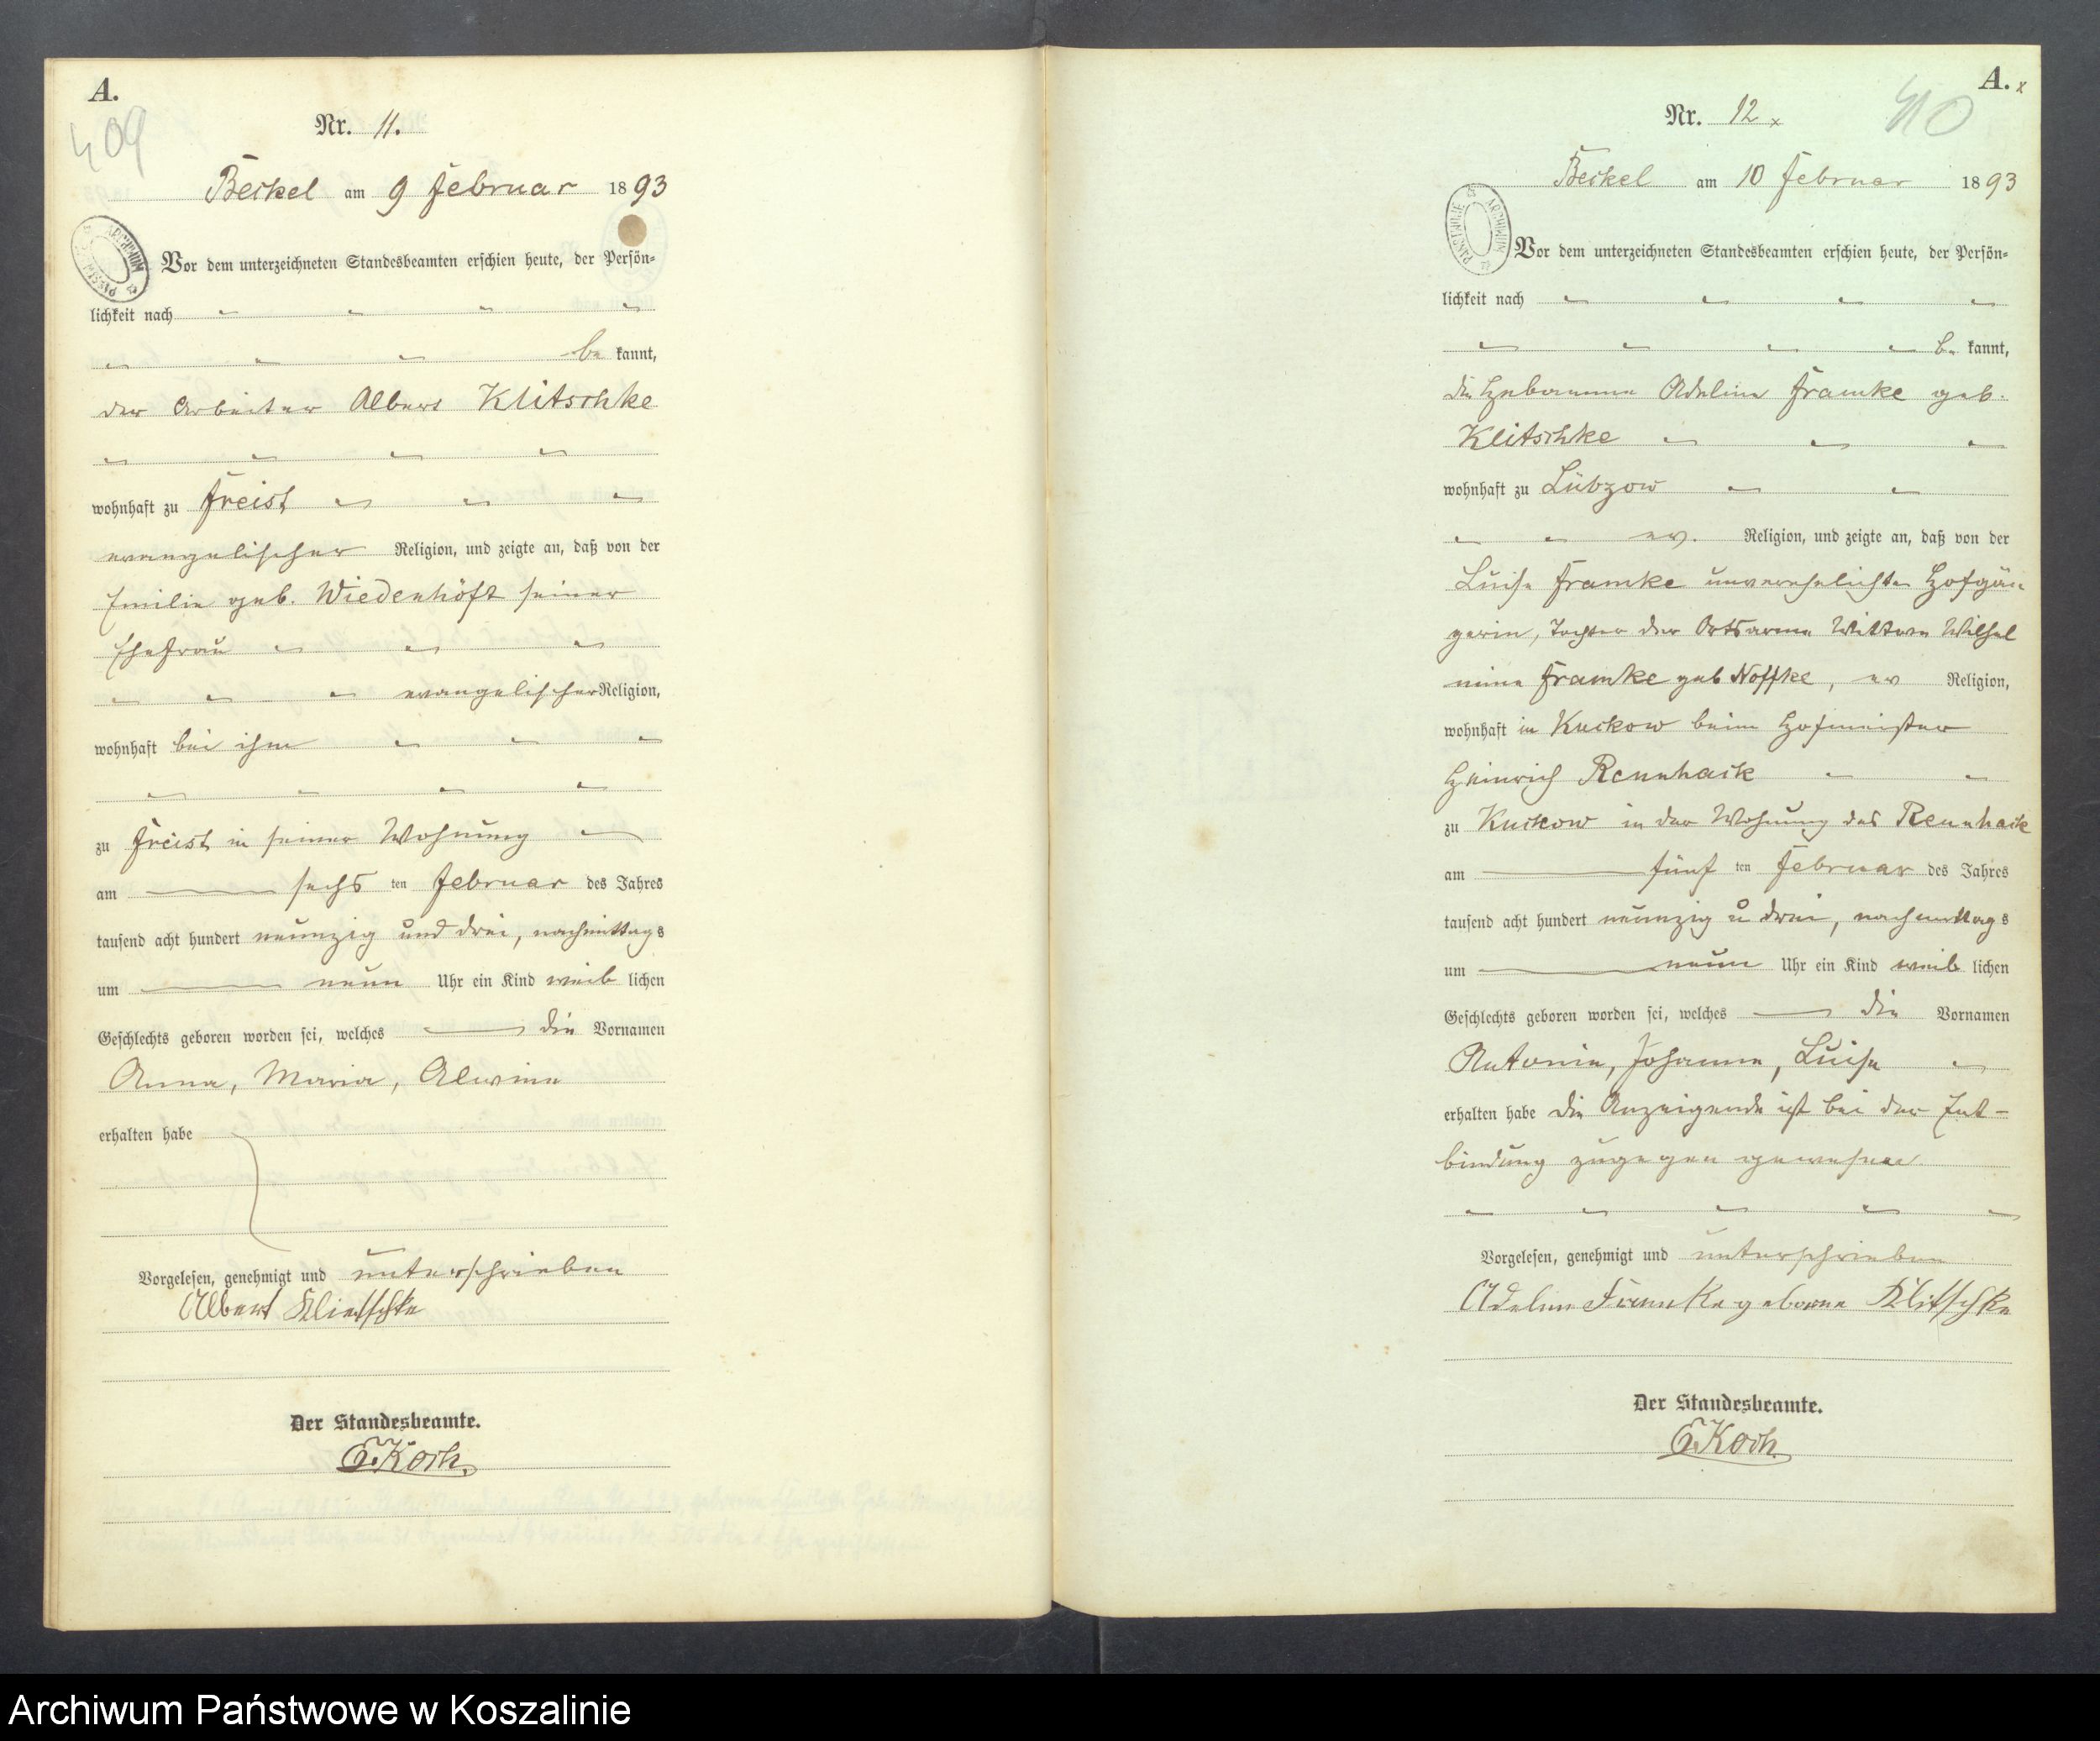 A.
409
Nr. 11.
Beckel am 9 Februar 1893
Vor dem unterzeichneten Standesbeamten erschien heute, der Persön-
lichkeit nach
be kannt,
der Arbeiter Albert Klitschke
wohnhaft zu Freist
evangelischer Religion, und zeigte an, daß von der
Emilie geb. Wiedenhöft seiner
Ehefrau
evangelischer Religion,
wohnhaft bei ihm
zu Freist in seiner Wohnung
am sechs ten Februar des Jahres
tausend acht hundert neunzig und drei, nachmittags
um neun Uhr ein Kind weib lichen
Geschlechts geboren worden sei, welches die Vornamen
Anna, Maria, Alwine
erhalten habe
Vorgelesen, genehmigt und unterschrieben
Albert Klietschke
Der Standesbeamte.
E. Koch.
A. x
410
Nr. 12 x
Beckel am 10 Februar 1893
ARCHIWUM PAŃSTWOWE
Vor dem unterzeichneten Standesbeamten erschien heute, der Persön-
lichkeit nach
be kannt,
die Hebamme Adeline Framke geb.
Klitschke
wohnhaft zu Lübzow
ev. Religion, und zeigte an, daß von der
Luise Framke unverehelichte Hofgän-
gerin, Tochter der Ortsarme Wittwe Wilhel
mine Framke geb Noffke, ev Religion,
wohnhaft in Kuckow beim Hofmeister
Heinrich Rennhack
zu Kuckow in der Wohnung des Rennhack
am fünf ten Februar des Jahres
tausend acht hundert neunzig u drei, nachmittags
um neun Uhr ein Kind weib lichen
Geschlechts geboren worden sei, welches die Vornamen
Antonie, Johanne, Luise
erhalten habe die Anzeigende ist bei der Ent-
bindung zugegen gewesen
Vorgelesen, genehmigt und unterschrieben
Adeline Framke geborne Klitschke
Der Standesbeamte.
E. Koch.
Archiwum Państwowe w Koszalinie